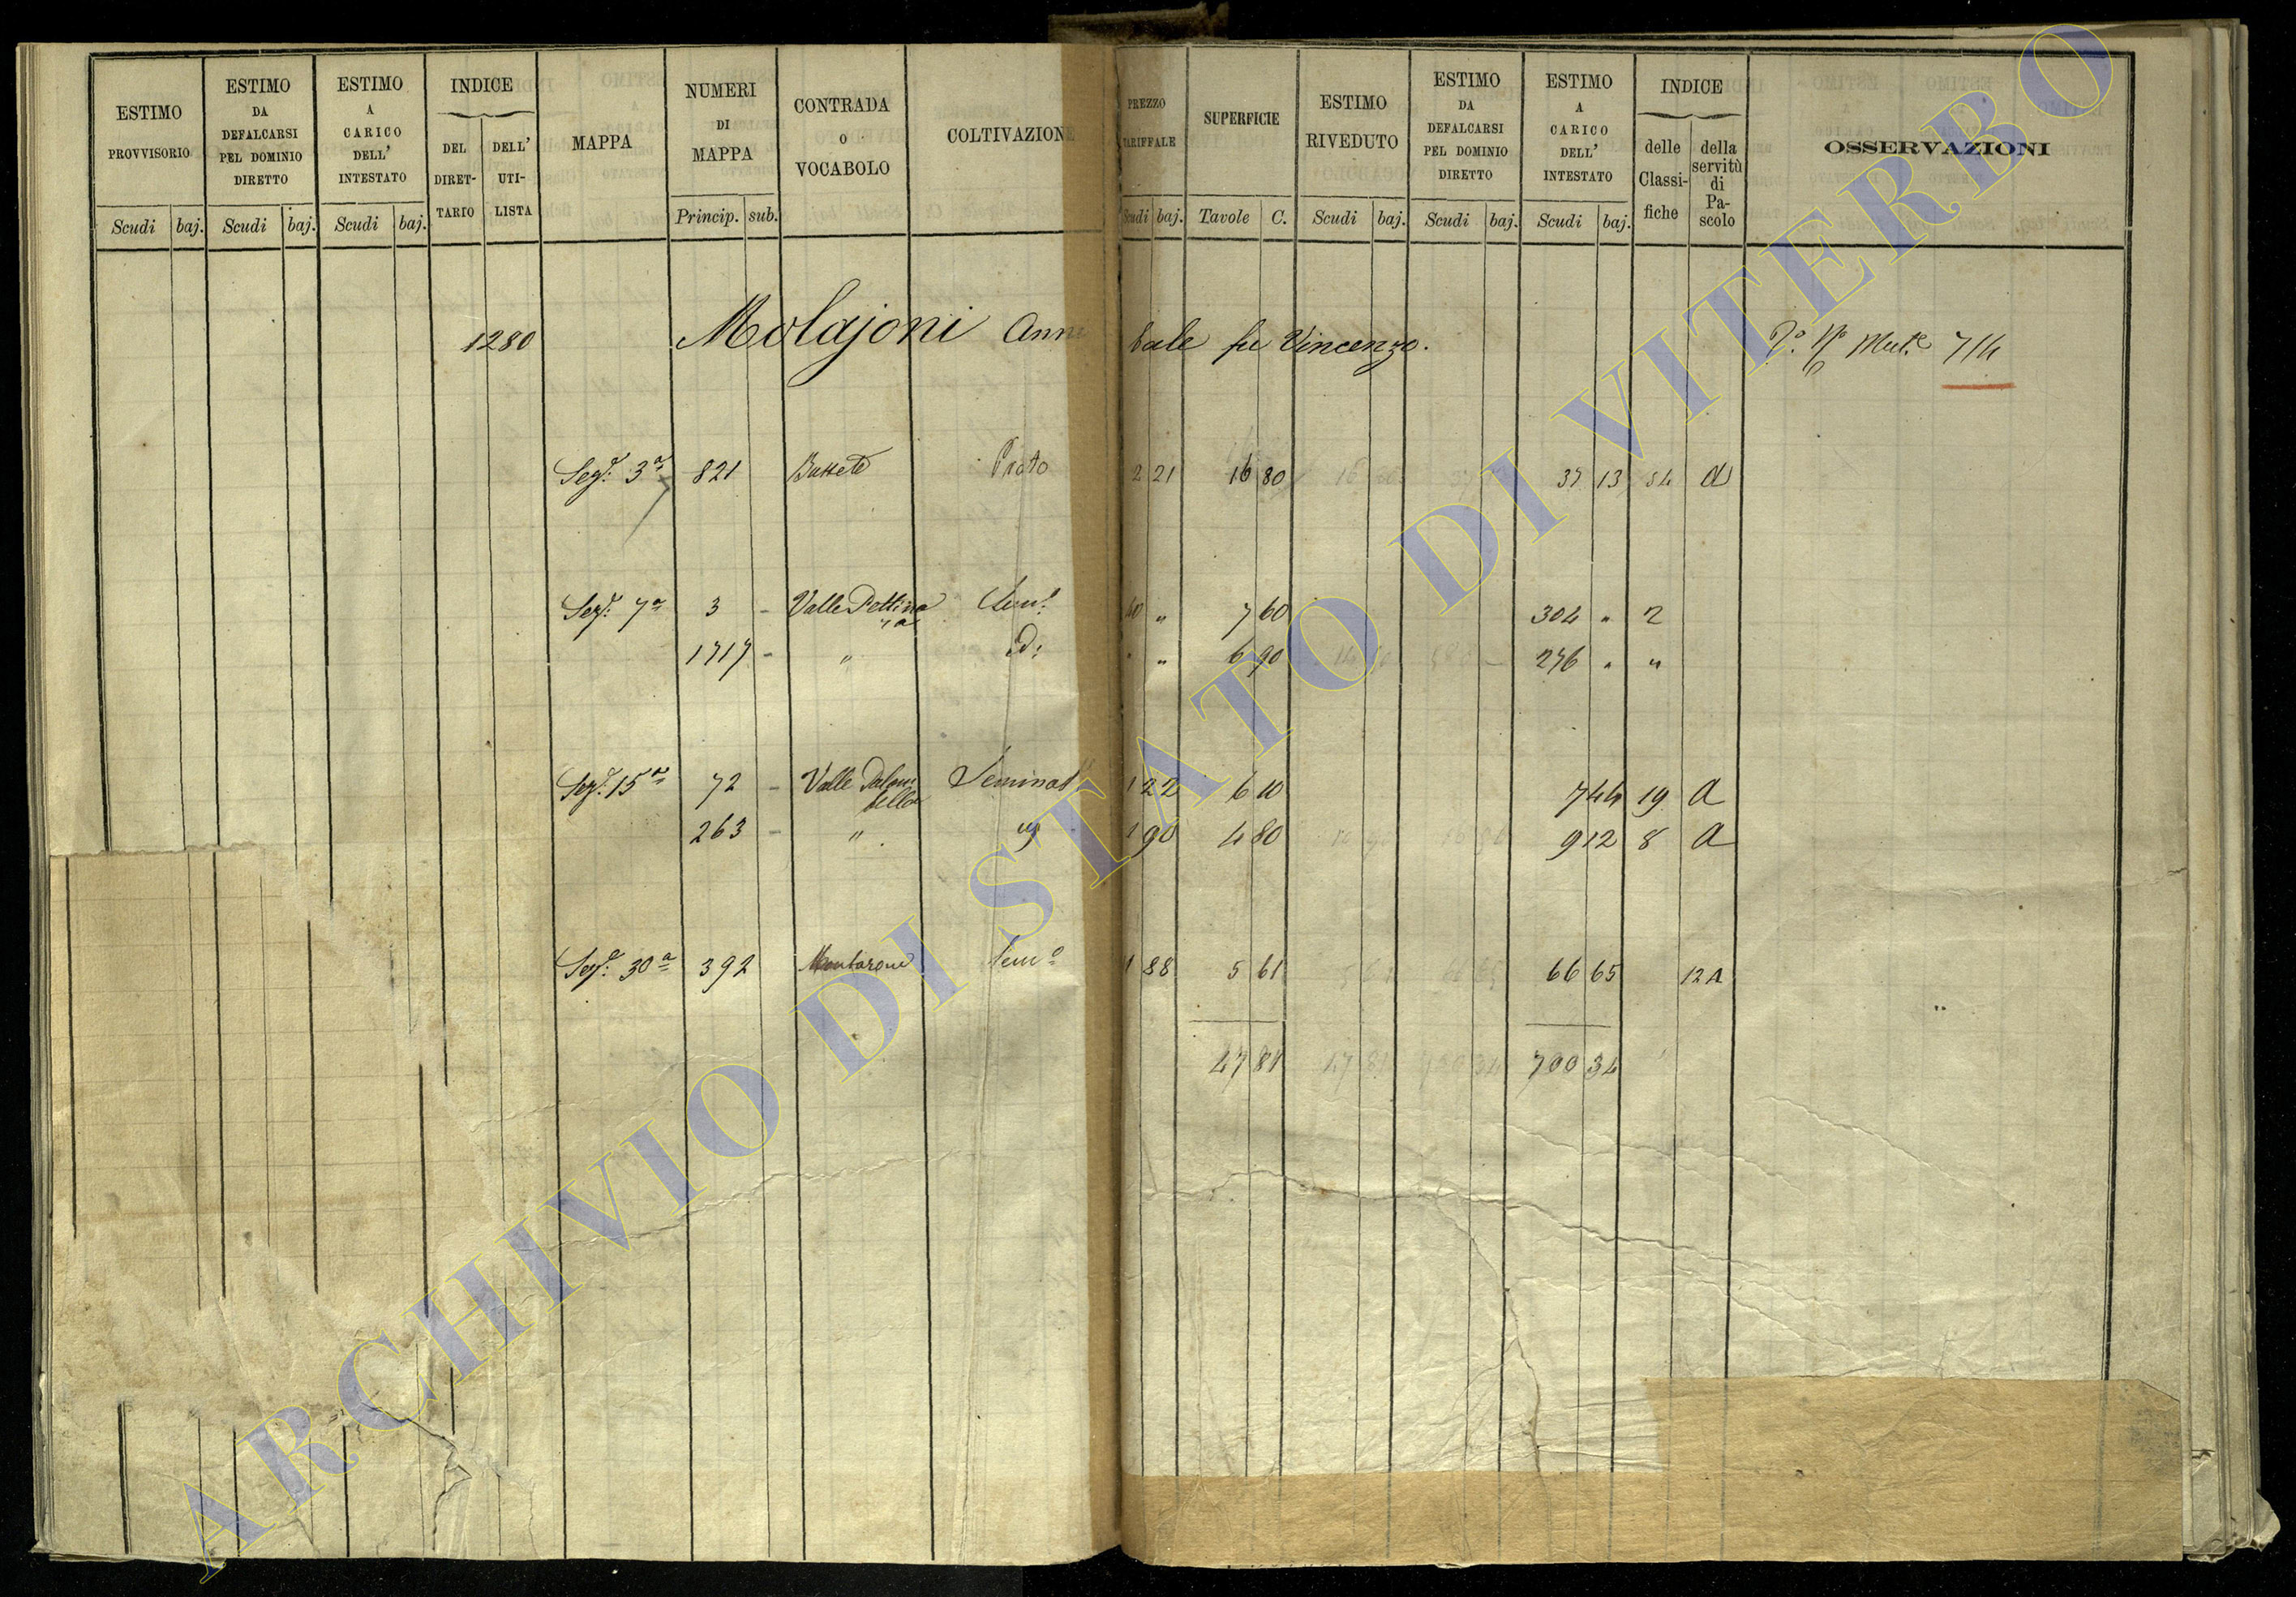 ESTIMO PROVVISORIO | ESTIMO DA DEFALCARSI PEL DOMINIO DIRETTO | ESTIMO A CARICO DELL' INTESTATO | INDICE DEL DIRETTARIO | DELL' UTILISTA | MAPPA | NUMERI DI MAPPA | CONTRADA O VOCABOLO | COLTIVAZIONE | PREZZO TARIFFALE | SUPERFICIE | ESTIMO RIVEDUTO | ESTIMO DA DEFALCARSI PEL DOMINIO DIRETTO | ESTIMO A CARICO DELL' INTESTATO | INDICE delle Classifiche | della servitù di Pascolo | OSSERVAZIONI
Scudi baj. Scudi baj. Scudi baj. Princip. sub. Scudi baj. Tavole C. Scudi baj. Scudi baj. Scudi baj.
1280 Molajoni Annibale fu Vincenzo. 714
Sez.e 3a 821 Prato 2 21 16 80 37 13 54 a
Sez.e 7a 3 - Valle Pettina Sem.o 40 " 7 60 304 " 2
1717 - " Id: " " 6 90 276 " "
Sez.e 15a 72 - Valle Seminat.o 1 22 6 10 7 44 19 a
263 - " " 1 90 4 80 9 12 8 a
Sez.e 30a 392 Montarone Sem.o 1 88 5 61 66 65 12 A
47 81 700 34
ARCHIVIO DI STATO DI VITERBO